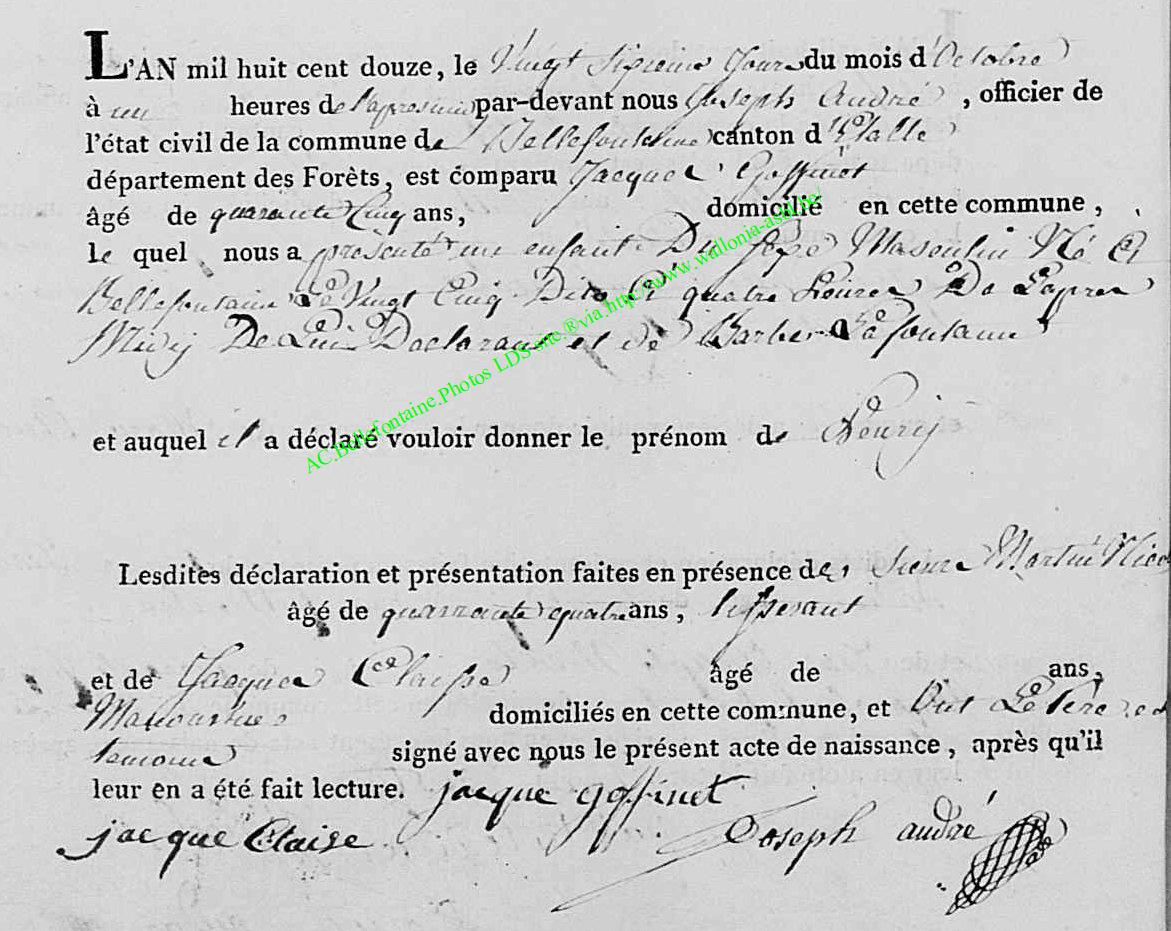 L'AN mil huit cent douze, le Vingt Sixieme Jour du mois d'Octobre
à un heures de l'apresmidi par-devant nous Joseph André, officier de
l'état civil de la commune de Bellefontaine canton d'Etalle
département des Forêts, est comparu Jacque Goffinet
âgé de quarante Cinq ans, domicilié en cette commune,
le quel nous a présenté un enfant Du Sexe Masculin Né A
Bellefontaine Le Vingt Cinq Dito A quatre heures De Lapres
Midy De Lui Declarant et de Barbe Lafontaine
et auquel il a déclaré vouloir donner le prénom de Henrij
Lesdites déclaration et présentation faites en présence de Martin Nico
âgé de quarrante quatre ans, tisserant
et de Jacque Claisse âgé de ans,
Manouvrier domiciliés en cette commune, et Ont Le Pere et
temoins signé avec nous le présent acte de naissance, après qu'il
leur en a été fait lecture. jacque goffinet
jacque Claise Joseph andré
AC.Bellefontaine.Photos LDS-site.®via.http://www.wallonia-asbl.be/